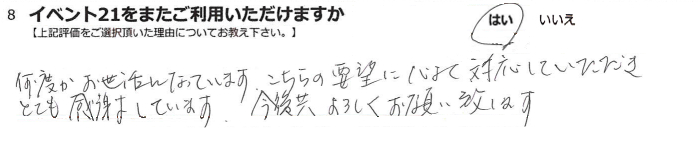 8 イベント21をまたご利用いただけますか はい いいえ
【上記評価をご選択頂いた理由についてお教え下さい。】
何度かお世話になっています こちらの要望に心よく対応していただき
とても感謝しています 今後共よろしくお願い致します